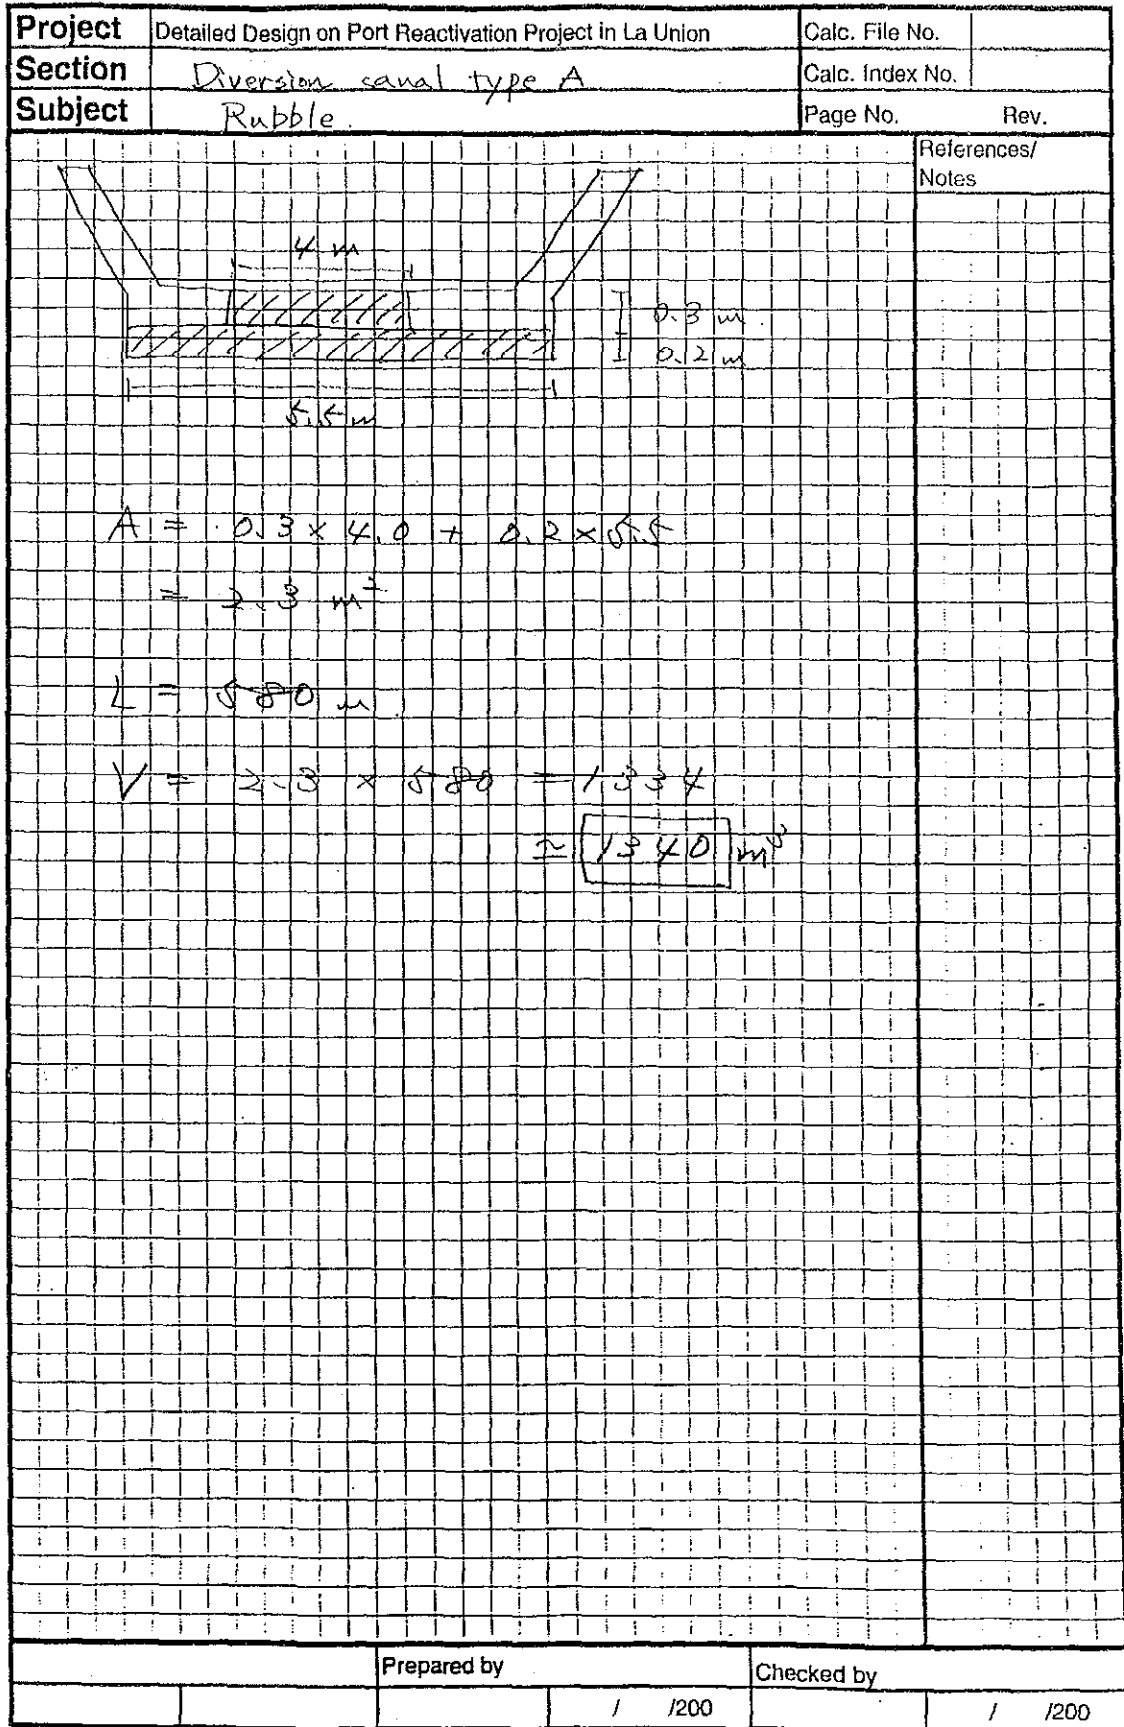 Project Detailed Design on Port Reactivation Project in La Union Calc. File No.
Section Diversion canal type A Calc. Index No.
Subject Rubble. Page No. Rev.
References/
Notes
4 m
0.3 m
0.2 m
5.5 m
A = 0.3 × 4.0 + 0.2 × 5.5
= 2.3 m²
L = 580 m
V = 2.3 × 580 = 1334
≃ 1340 m³
Prepared by Checked by
/ /200 / /200